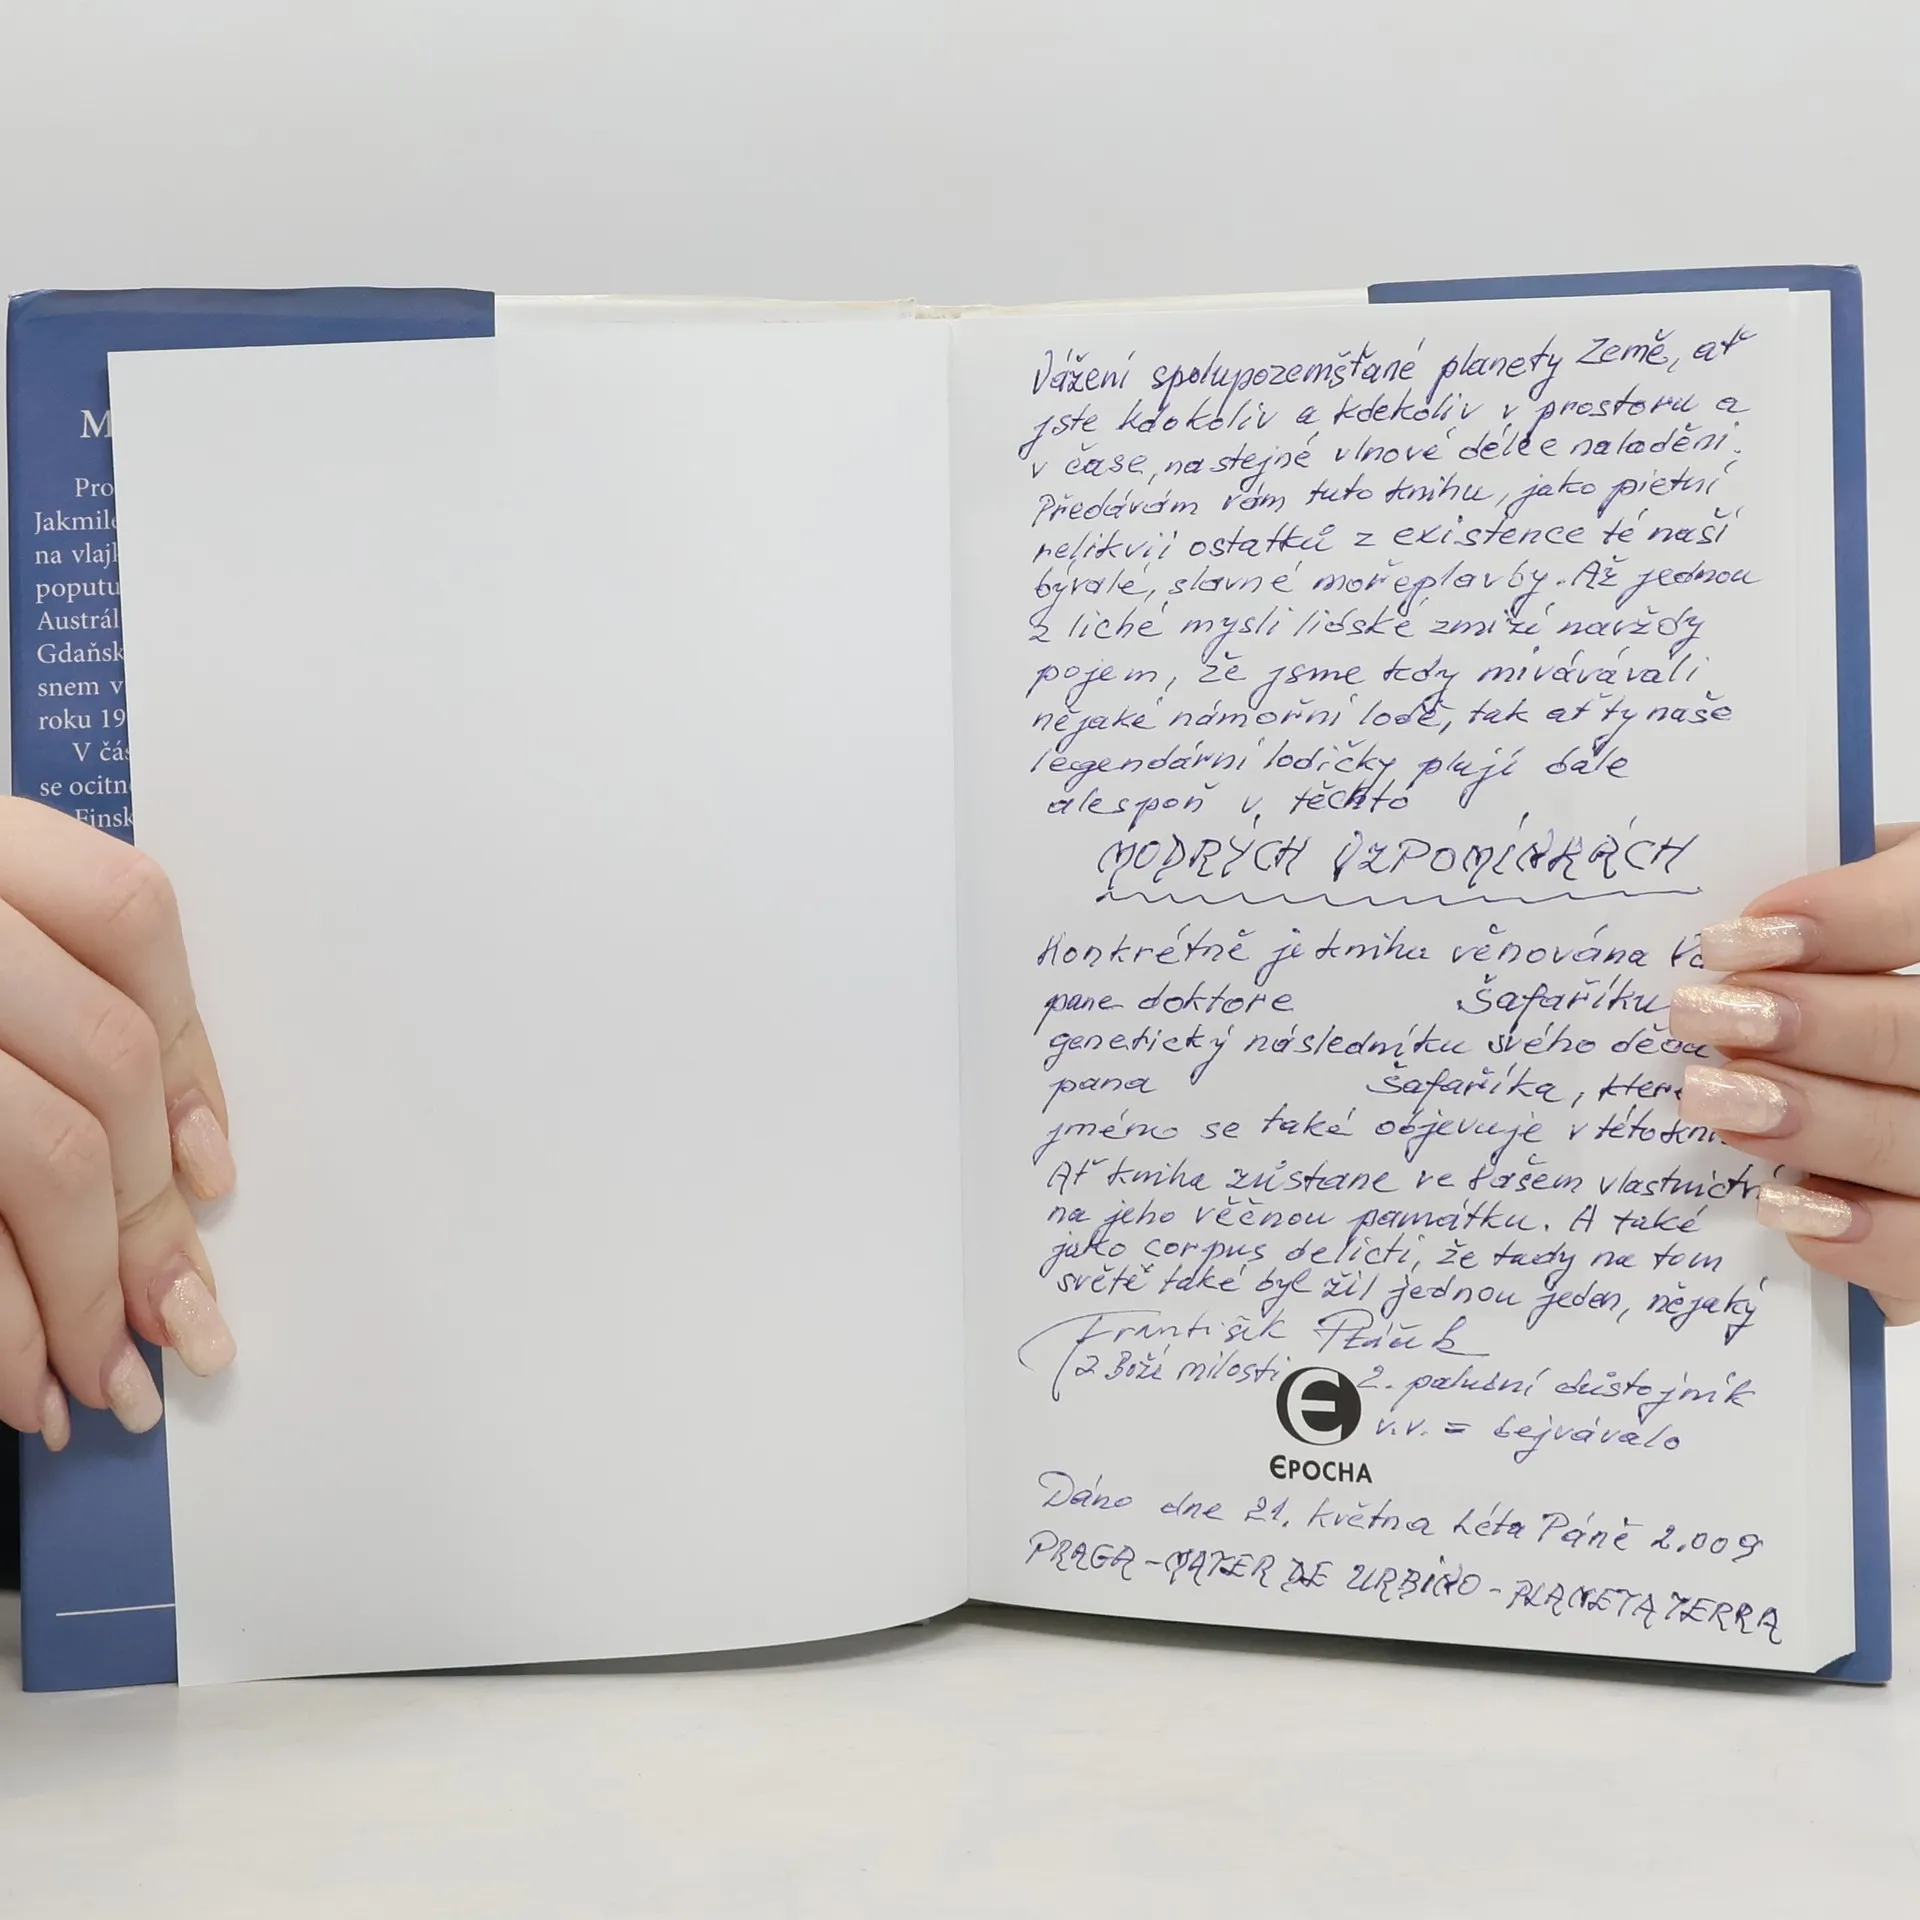 M
Pro
Jakmile
na vlajk
poputu
Austrál
Gdaňsk
snem v
roku 19
V čás
se ocitn
Finsk
Vážení spolupozemšťané planety Země, ať
jste kdokoliv a kdekoliv v prostoru a
v čase, na stejné vlnové délce naladěni.
Předávám vám tuto knihu, jako pietní
relikvii ostatků z existence té naší
bývalé, slavné mořeplavby. Až jednou
z liché mysli lidské zmizí navždy
pojem, že jsme kdy mivávávali
nějaké námořní lodě, tak ať ty naše
legendární lodičky plují dále
alespoň v těchto
MODRÝCH VZPOMÍNKÁCH
Konkrétně je kniha věnována
pane doktore Šafaříku
genetický následníku svého děda
pana Šafaříka,
jméno se také objevuje v této
Ať kniha zůstane ve Vašem vlastnictví
na jeho věčnou památku. A také
jako corpus delicti, že tady na tom
světě také byl žil jednou jeden, nějaký
František Ptáček
Z Boží milosti 2. palubní důstojník
v.v. = bejvávalo
EPOCHA
Dáno dne 21. května Léta Páně 2.009
PRAGA - MATER DE URBINO - PLANETA TERRA